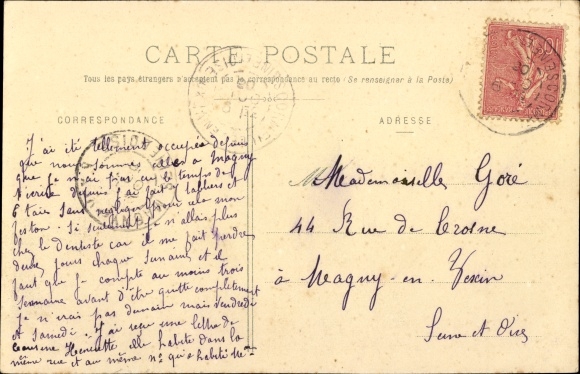 CARTE POSTALE
Tous les pays étrangers n'acceptent pas la correspondance au recto (Se renseigner à la Poste)
CORRESPONDANCE
ADRESSE
J'ai été tellement occupée depuis
que nous sommes allées à Magny
que je n'ai pas eu le temps de
t'écrire depuis j'ai fait 2 tabliers et
6 taies sans négliger pour cela mon
feston. Si seulement je n'allais plus
chez le dentiste car il me fait perdre
deux jours chaque semaine et il
faut que je compte au moins trois
semaines avant d'être quitte complètement
je n'irai pas demain mais vendredi
et samedi. J'ai reçu une lettre de
cousine Henriette elle habite dans la
même rue et au même n° qu'a habité
Mademoiselle Goré
44 Rue de Crosne
à Magny-en-Vexin
Seine et Oise